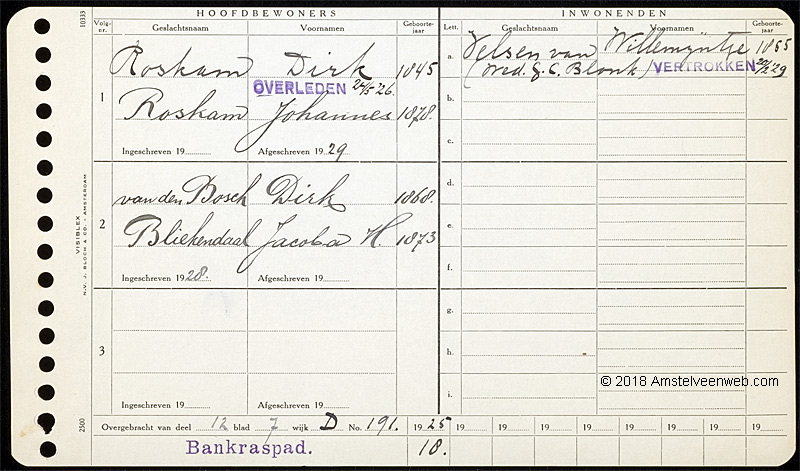 HOOFDBEWONERS
Volg-nr. Geslachtsnaam Voornamen Geboorte-jaar
1
Roskam Dirk 1845
OVERLEDEN 24/5 '26.
Roskam Johannes 1878.
Ingeschreven 19 Afgeschreven 1929
2
van den Bosch Dirk 1868.
Bliekendaal Jacoba H. 1873
Ingeschreven 1928. Afgeschreven 19
3
Ingeschreven 19 Afgeschreven 19
INWONENDEN
Lett. Geslachtsnaam Voornamen Geboorte-jaar
a. Velsen van Willemijntje 1855
(wed. G. C. Blonk) VERTROKKEN
b.
c.
d.
e.
f.
g.
h.
i.
Overgebracht van deel 12 blad 7 wijk D No. 191. 1925 19 19 19 19 19 19 19 19
Bankraspad. 18.
10333
VISIBLEX
N.V. J. BLOCH & CO. - AMSTERDAM
2500
© 2018 Amstelveenweb.com